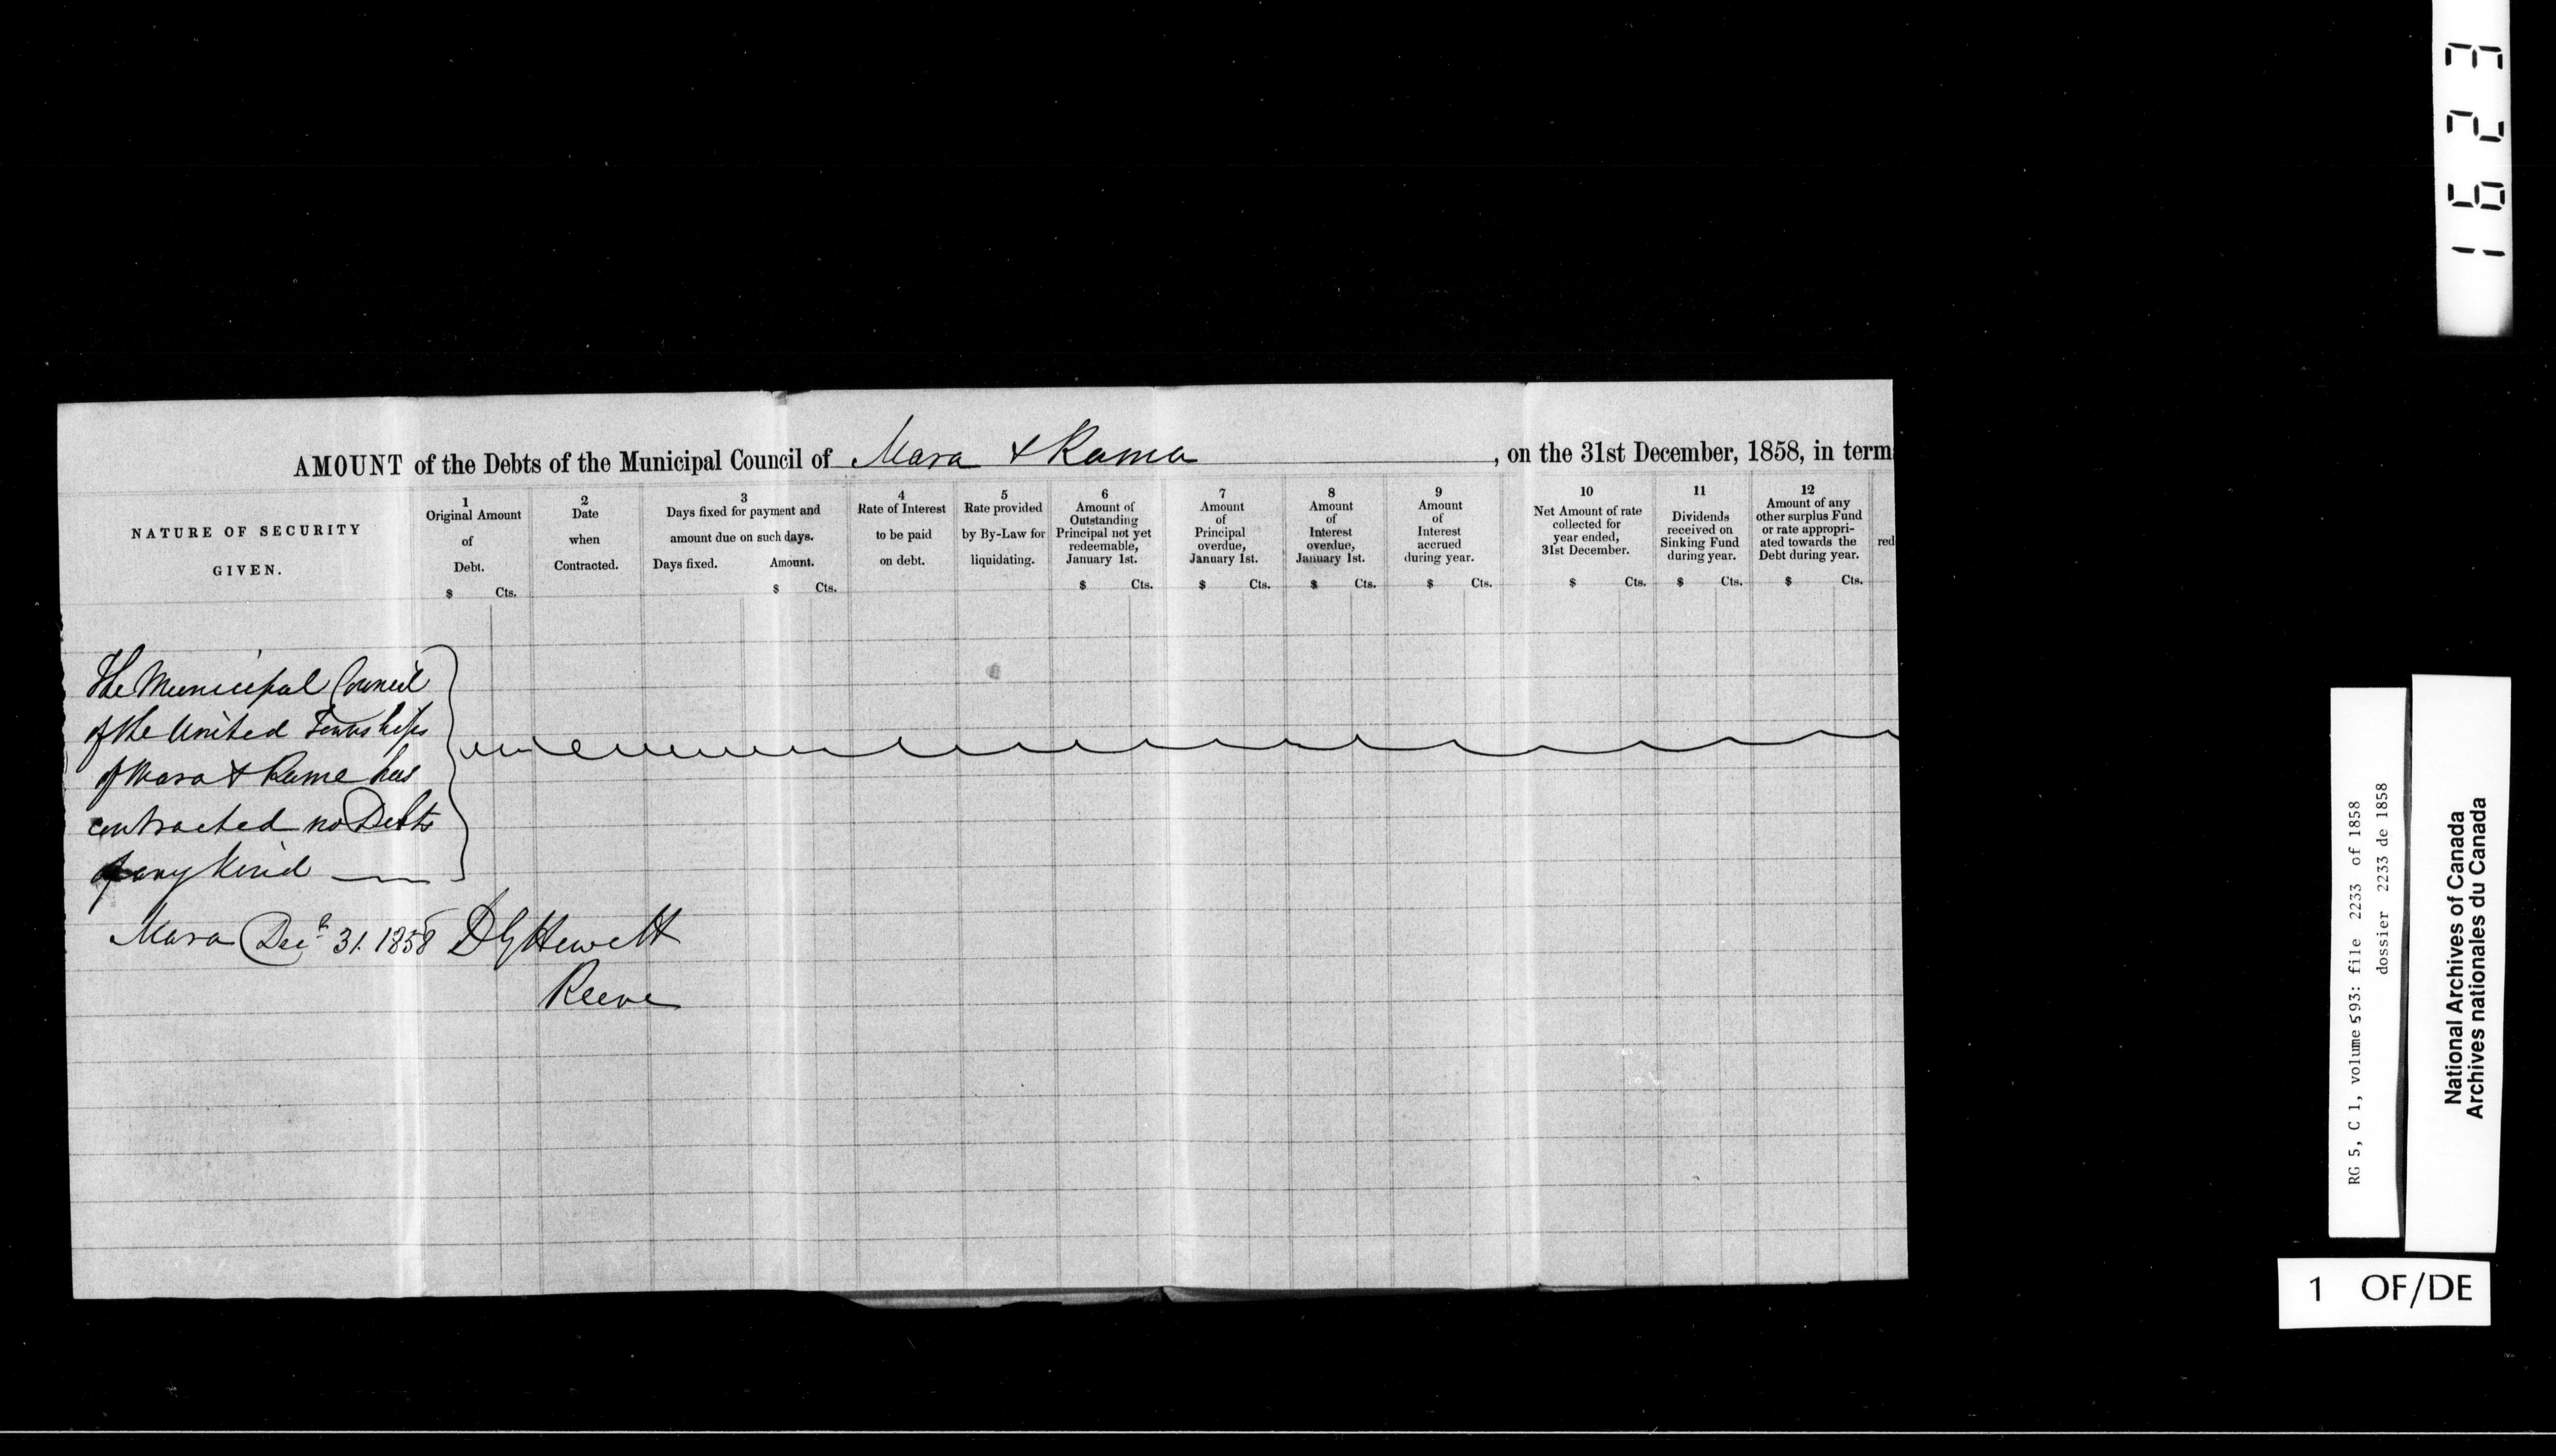 AMOUNT of the Debts of the Municipal Council of Mara & Rama, on the 31st December, 1858, in term
NATURE OF SECURITY
GIVEN.
1
Original Amount
of
Debt.
$ Cts.
2
Date
when
Contracted.
3
Days fixed for payment and
amount due on such days.
Days fixed. Amount.
$ Cts.
4
Rate of Interest
to be paid
on debt.
5
Rate provided
by By-Law for
liquidating.
6
Amount of
Outstanding
Principal not yet
redeemable,
January 1st.
$ Cts.
7
Amount
of
Principal
overdue,
January 1st.
$ Cts.
8
Amount
of
Interest
overdue,
January 1st.
$ Cts.
9
Amount
of
Interest
accrued
during year.
$ Cts.
10
Net Amount of rate
collected for
year ended,
31st December.
$ Cts.
11
Dividends
received on
Sinking Fund
during year.
$ Cts.
12
Amount of any
other surplus Fund
or rate appropri-
ated towards the
Debt during year.
$ Cts.
red
The Municipal Council
of the United Townships
of Mara & Rama has
contracted no Debts
of any Kind
Mara Decr 31. 1858 D G Hewett
Reeve
1623
RG 5, C 1, volume 593: file 2233 of 1858
dossier 2233 de 1858
National Archives of Canada
Archives nationales du Canada
1 OF/DE